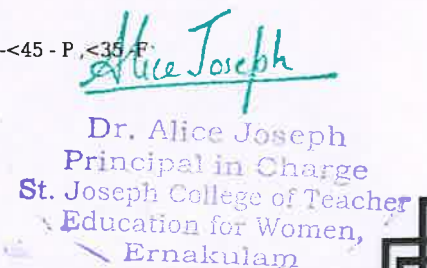 -<45 - P ,<35 -F
Alice Joseph
Dr. Alice Joseph
Principal in Charge
St. Joseph College of Teacher
Education for Women,
Ernakulam